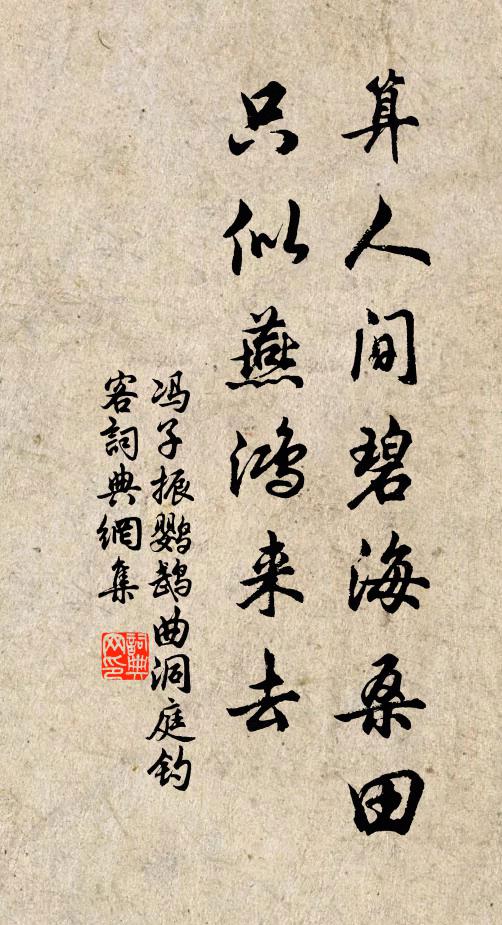 算人间碧海桑田
只似燕鸿来去
冯子振鹦鹉曲洞庭钓
客词典網集
詞典
网印